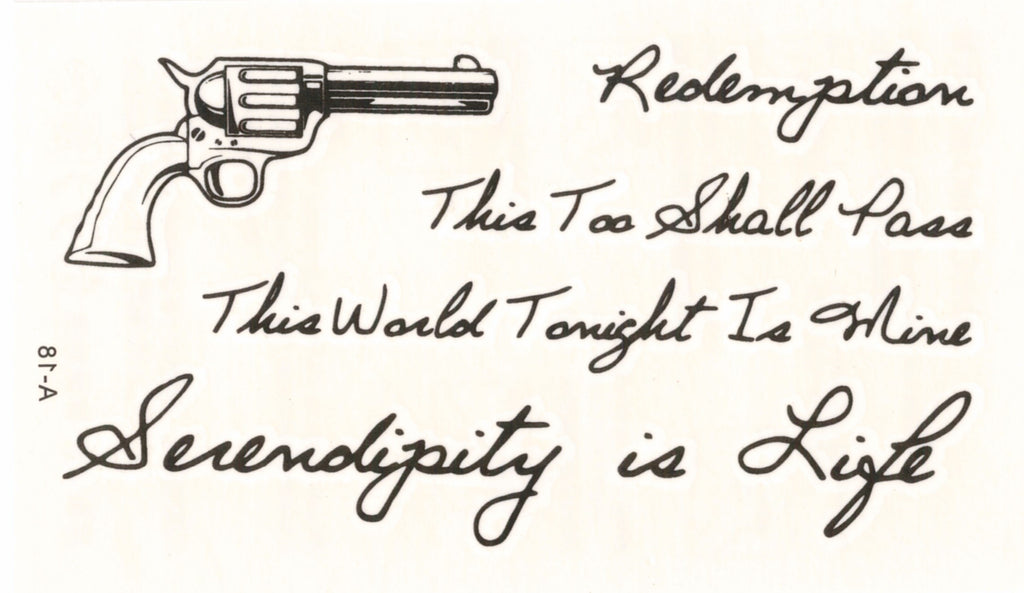 Redemption
This Too Shall Pass
This World Tonight Is Mine
Serendipity is Life
A-18